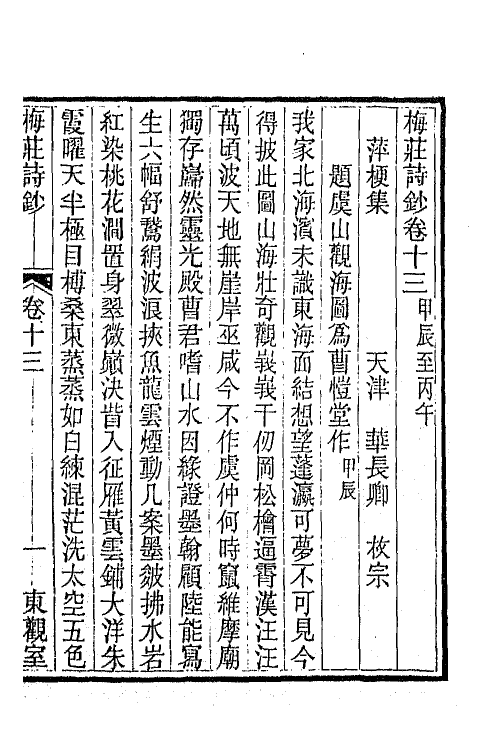 梅莊詩鈔卷十三甲辰至丙午
萍梗集　天津　華長卿　枚宗
題虞山觀海圖爲曹愷堂作甲辰
我家北海濱未識東海面結想望蓬瀛可夢不可見今
得披此圖山海壯奇觀峩峩千仞岡松檜逼霄漢汪汪
萬頃波天地無崖岸巫咸今不作虞仲何時竄維摩廟
獨存巋然靈光殿曹君嗜山水因緣證墨翰顧陸能寫
生六幅舒鵞絹波浪挾魚龍雲煙動几案墨皴拂水岩
紅染桃花澗置身翠微巔決眥入征雁黃雲鋪大洋朱
霞曜天半極目榑桑東蒸蒸如白練混茫洗太空五色
梅莊詩鈔　卷十三　一　東觀室